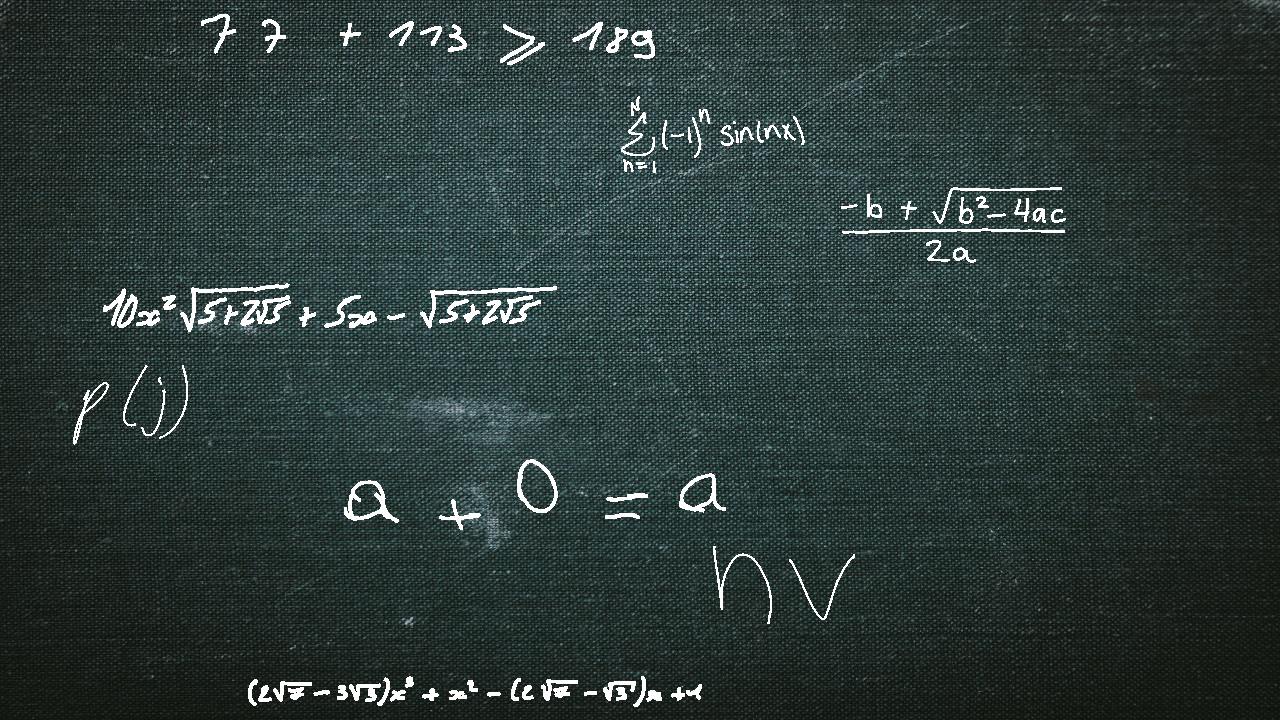 77 + 113 ⩾ 189
\sum_{n=1}^{N} (-1)^n sin(nx)
\frac{-b + \sqrt{b^2 - 4ac}}{2a}
10x^2\sqrt{5+2\sqrt{5}} + 5x - \sqrt{5+2\sqrt{5}}
p(j)
a + 0 = a
nv
(2\sqrt{7} - 3\sqrt{3})x^3 + x^2 - (2\sqrt{7} - \sqrt{3})x +